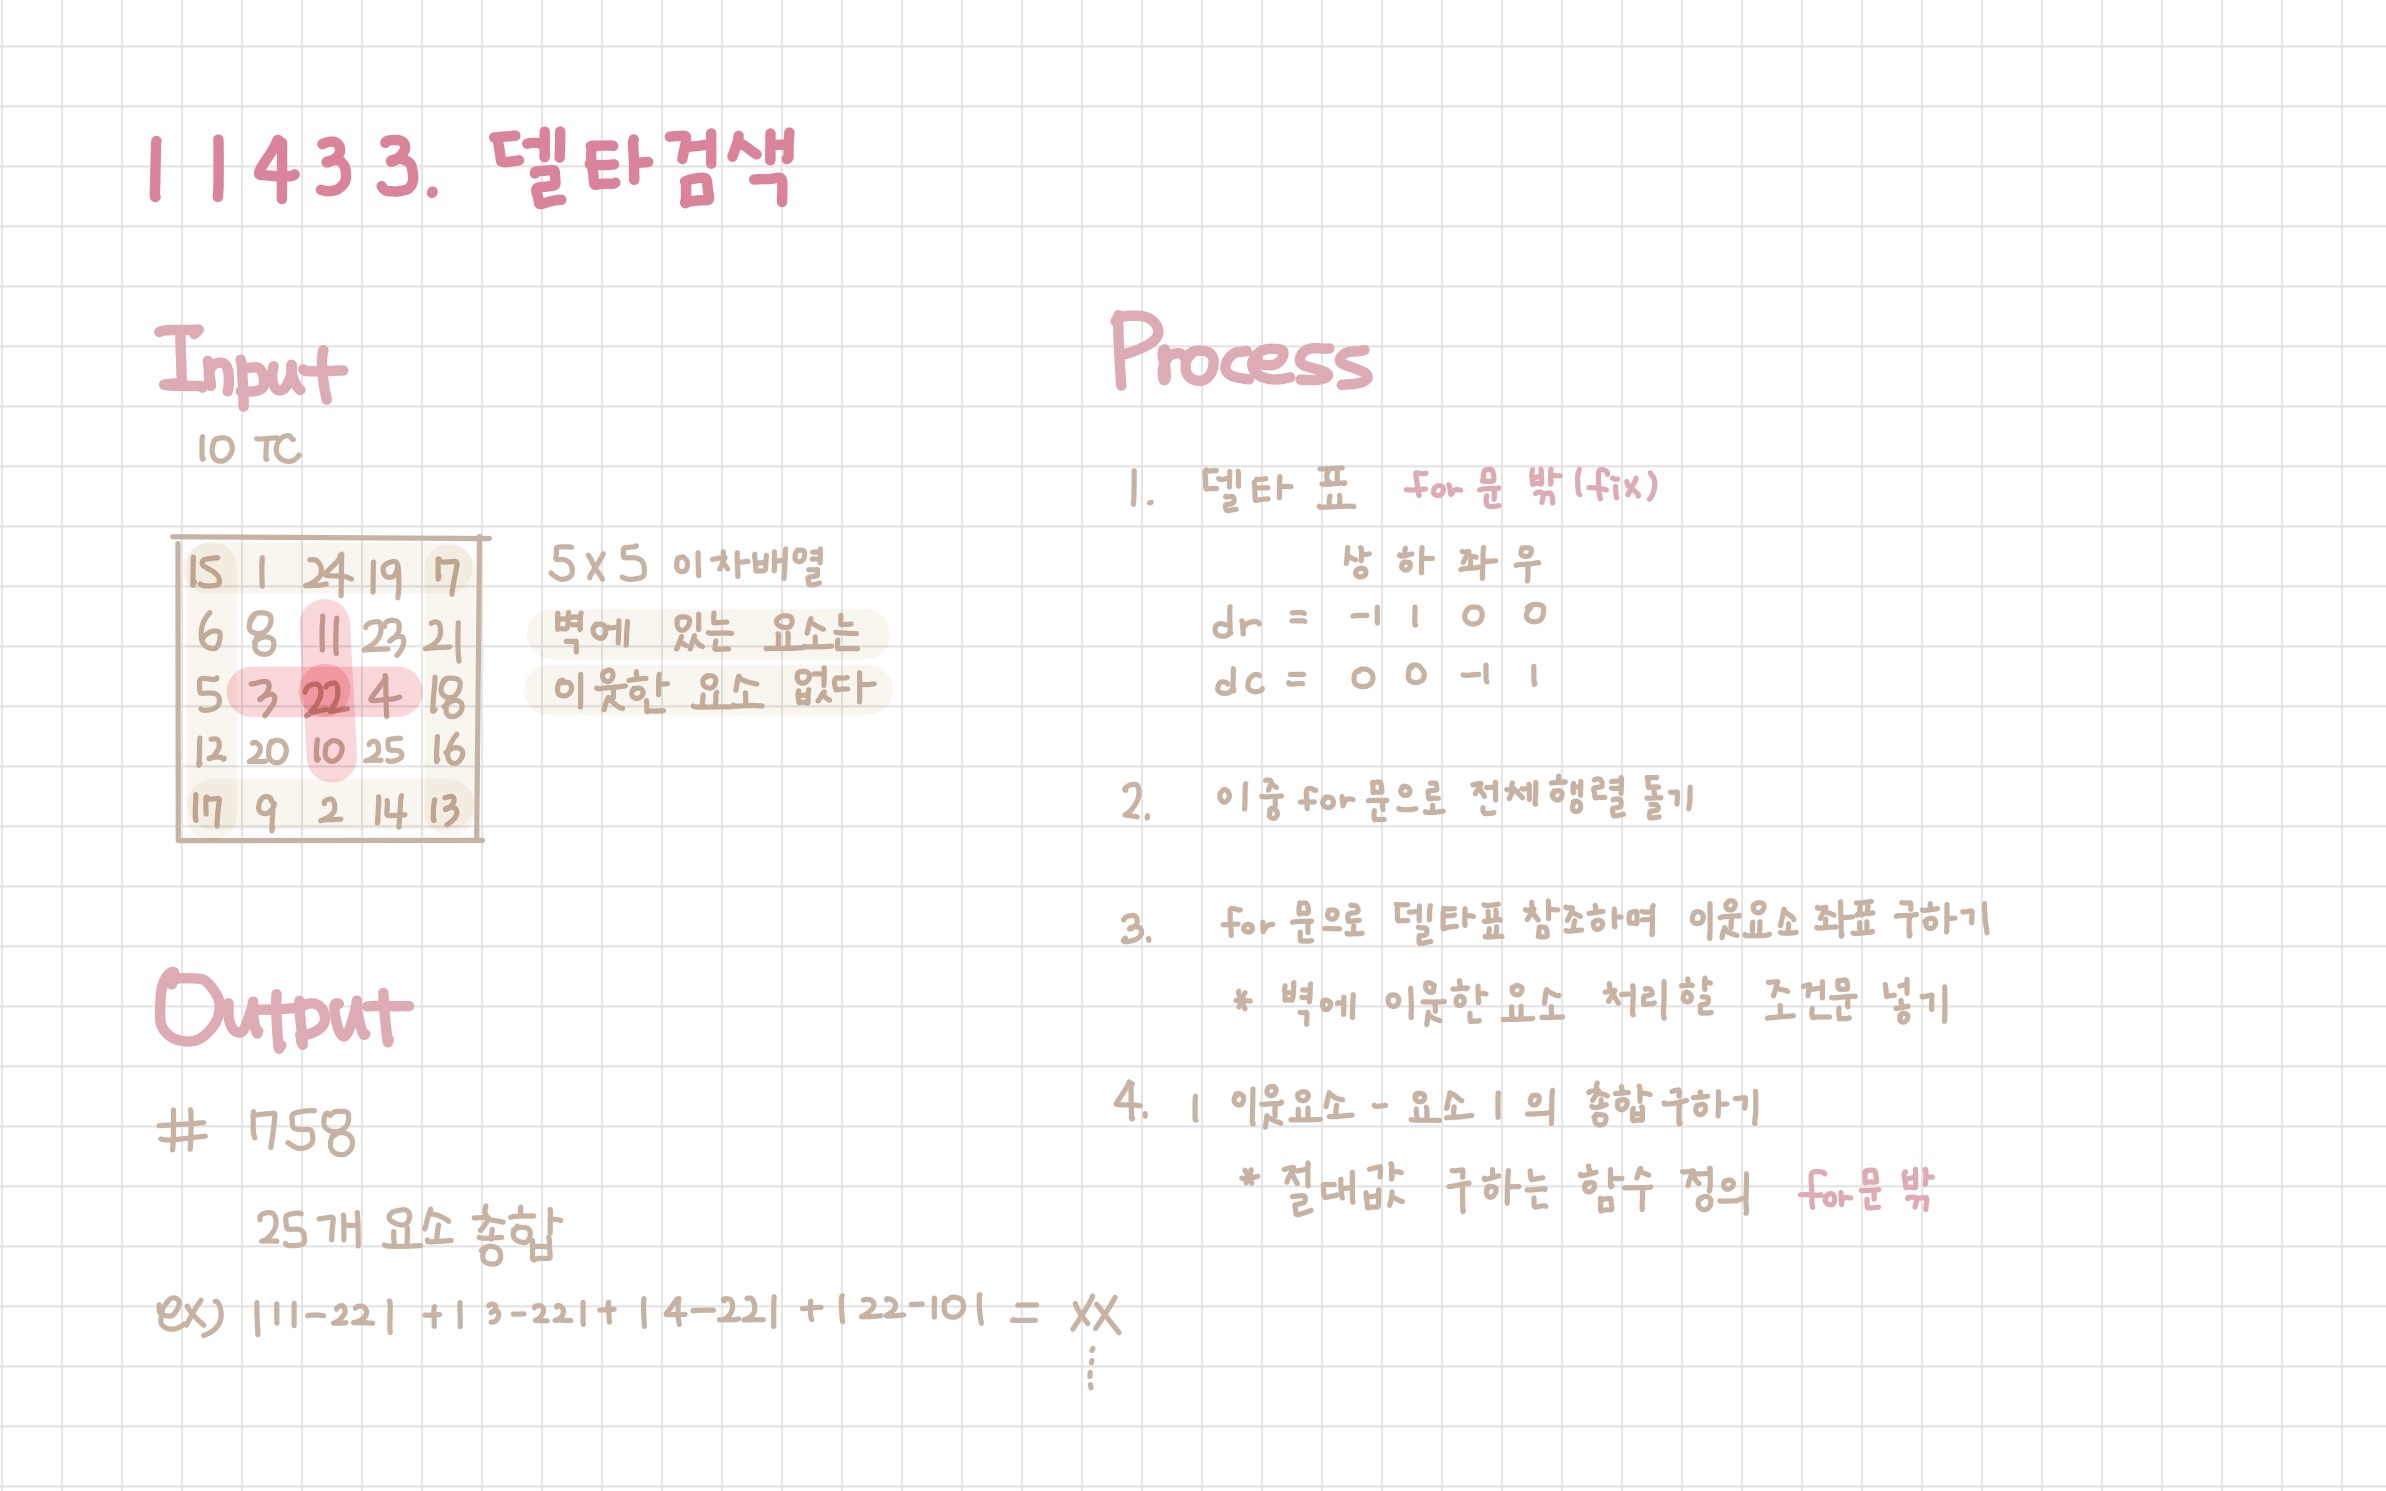 11433. 델타검색
Input
10 TC
15 1 24 19 17
6 8 11 23 21
5 3 22 4 18
12 20 10 25 16
17 9 2 14 13
5x5 이차배열
벽에 있는 요소는
이웃한 요소 없다
Output
# 758
25개 요소 총합
ex) |11-22| + |3-22| + |4-22| + |22-10| = XX
Process
1. 델타 표 for문 밖(fix)
상 하 좌 우
dr = -1 1 0 0
dc = 0 0 -1 1
2. 이중 for문으로 전체행렬돌기
3. for문으로 델타표 참조하며 이웃요소 좌표 구하기
* 벽에 이웃한 요소 처리할 조건문 넣기
4. | 이웃요소 - 요소 | 의 총합구하기
* 절대값 구하는 함수 정의 for문 밖